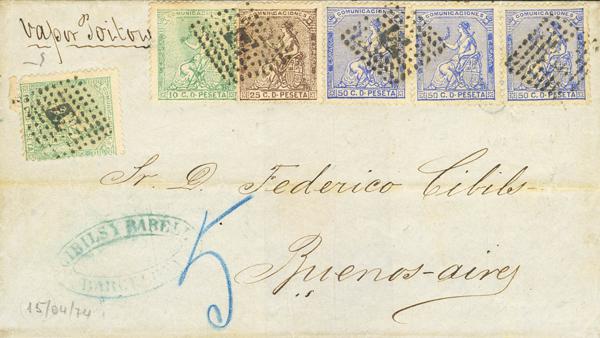 Vapor Poitou
COMUNICACIONES
10 C. D. PESETA
COMUNICACIONES
25 C. D. PESETA
COMUNICACIONES
50 C. D. PESETA
COMUNICACIONES
50 C. D. PESETA
COMUNICACIONES
50 C. D. PESETA
Sr. D. Federico Cibils
Buenos-aires
5
CIBILS Y BABELL
BARCELONA
15/04/74